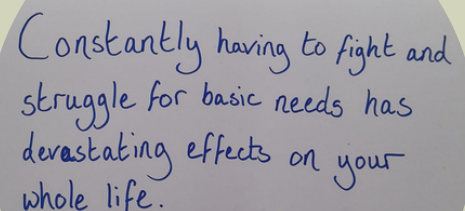 Constantly having to fight and
struggle for basic needs has
devastating effects on your
whole life.